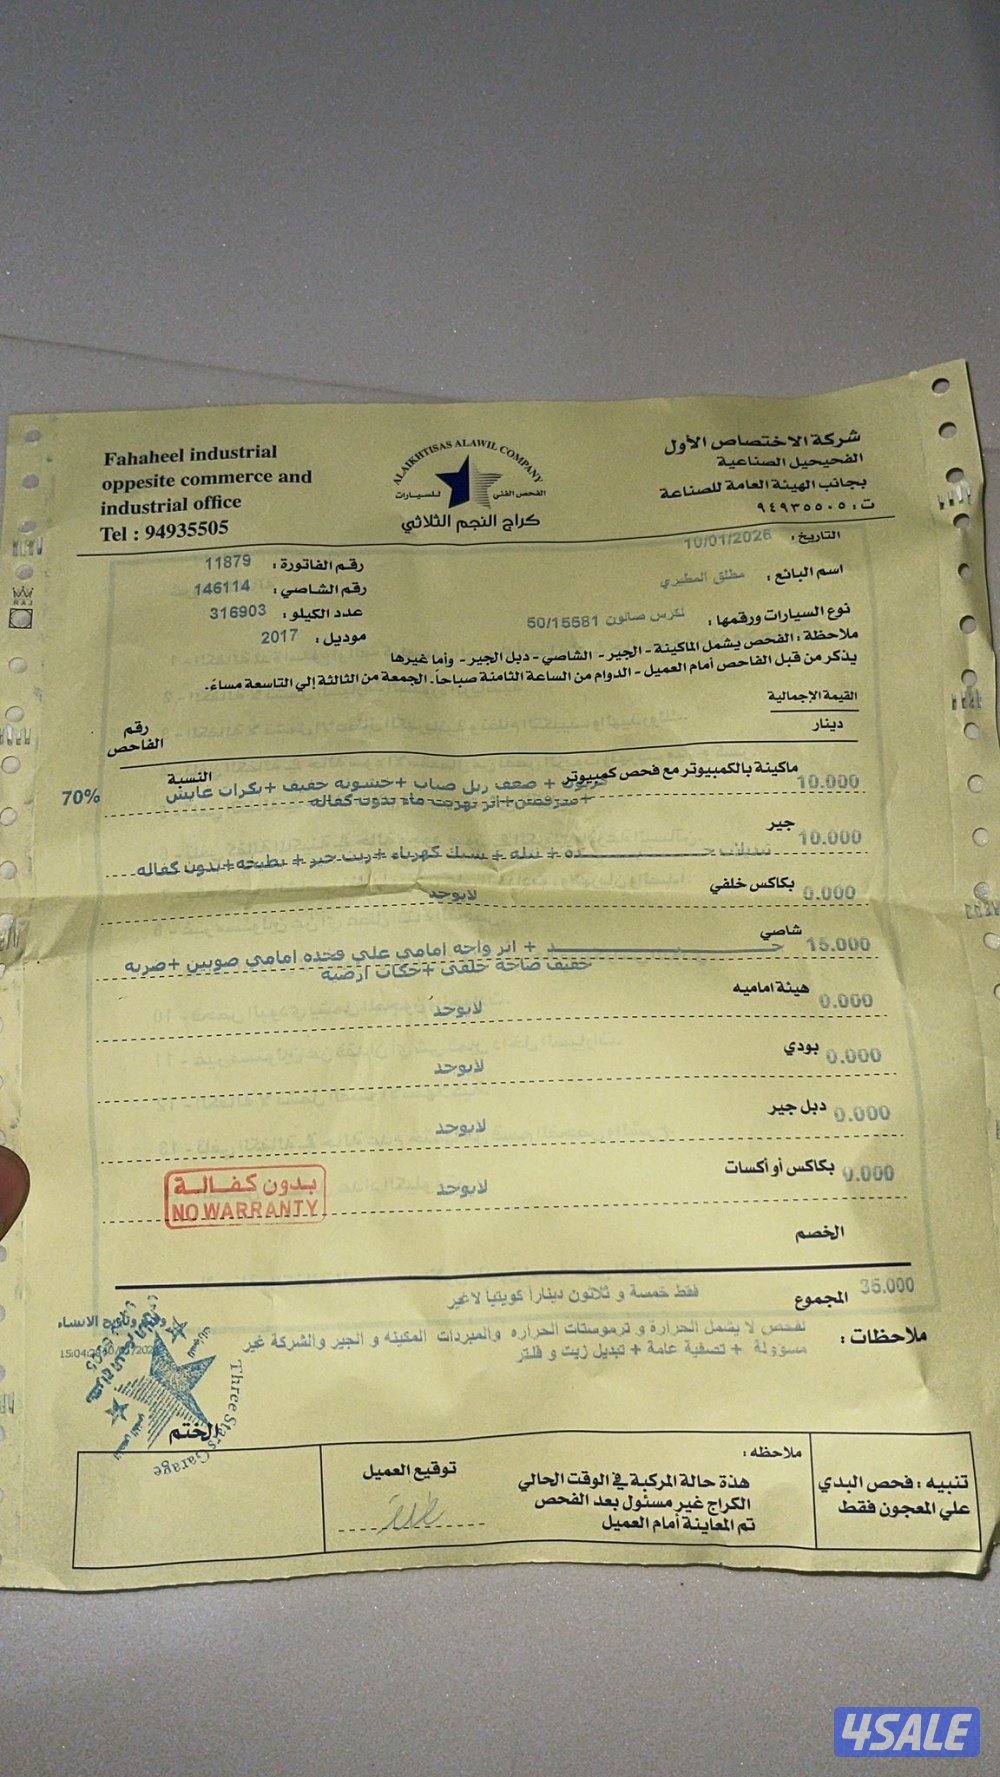 Fahaheel industrial
oppesite commerce and
industrial office
Tel : 94935505
ALAIKHTISAS ALAWIL COMPANY
الفحص الفني للسيارات
كراج النجم الثلاثي
شركة الاختصاص الأول
الفحيحيل الصناعية
بجانب الهيئة العامة للصناعة
ت : ٩٤٩٣٥٥٠٥
التاريخ : 10/01/2026
رقم الفاتورة : 11879
اسم البائع : مطلق المطيري
رقم الشاصي : 146114
نوع السيارات ورقمها : لكزس صالون 50/15581
عدد الكيلو : 316903
موديل : 2017
ملاحظة : الفحص يشمل الماكينة - الجير - الشاصي - دبل الجير - وأما غيرها
يذكر من قبل الفاحص أمام العميل - الدوام من الساعة الثامنة صباحاً. الجمعة من الثالثة إلي التاسعة مساءً.
القيمة الإجمالية
دينار
رقم الفاحص
10.000 ماكينة بالكمبيوتر مع فحص كمبيوتر
النسبة 70%
+ ضعف ربل صباب + خشونه خفيف + بكرات عايش
+ اثر تهريب ماء بدون كفاله
10.000 جير
+ تبله + سبك كهرباء + زيت جير + بطيحه + بدون كفاله
0.000 بكاكس خلفي
لايوجد
15.000 شاصي
جـــــيـــــد + اثر واجه امامي علي فخده امامي صوبين + ضربه
خفيف صاجة خلفي + حكات ارضية
0.000 هيئة اماميه
لايوجد
0.000 بودي
لايوجد
0.000 دبل جير
لايوجد
0.000 بكاكس أو أكسات
لايوجد
بدون كفالة
NO WARRANTY
الخصم
35.000 المجموع
فقط خمسة و ثلاثون ديناراً كويتياً لاغير
ملاحظات : لفحص لا يشمل الحرارة و ترموستات الحراره والمبردات المكينه و الجير والشركة غير
مسوولة + تصفية عامة + تبديل زيت و فلتر
الختم
Three Stars Garage
تنبيه : فحص البدي
علي المعجون فقط
ملاحظه :
هذة حالة المركبة في الوقت الحالي
الكراج غير مسئول بعد الفحص
تم المعاينة أمام العميل
توقيع العميل
RAJ
4SALE